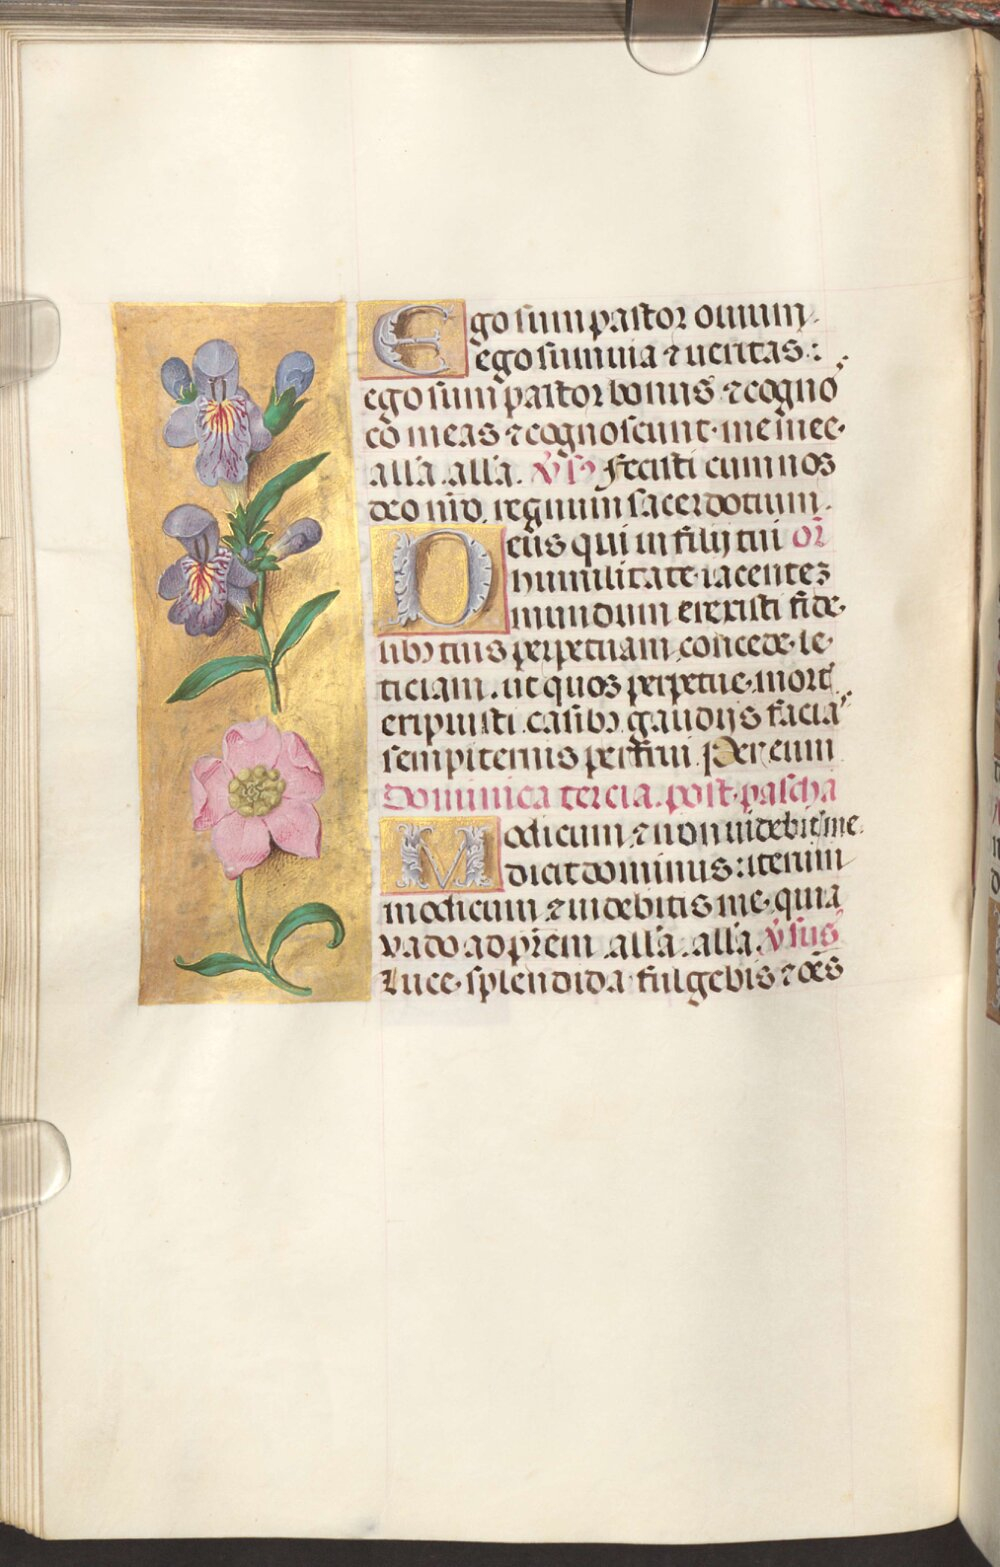 Ego sum pastor ouium.
ego sum uia ⁊ ueritas :
ego sum pastor bonus ⁊ cogno
sco meas ⁊ cognoscunt me mee.
all'a. all'a. v̄s. Fecisti eum nos
deo n̄ro. regnum sacerdotium.
Deus qui in filij tui or̄
humilitate iacentez
mundum erexisti fide-
libꝫ tuis perpetuam concede le-
ticiam. ut quos perpetue mort̄
eripuisti casibꝫ gaudijs facia
sempiternis perfrui. Per eum
Dominica tercia. post pascha
Modicum ⁊ non uidebitis me
dicit dominus: iterum
modicum ⁊ uidebitis me. quia
vado ad p̄rem all'a. all'a. v̄sus
Luce splendida fulgebis ⁊ oēs